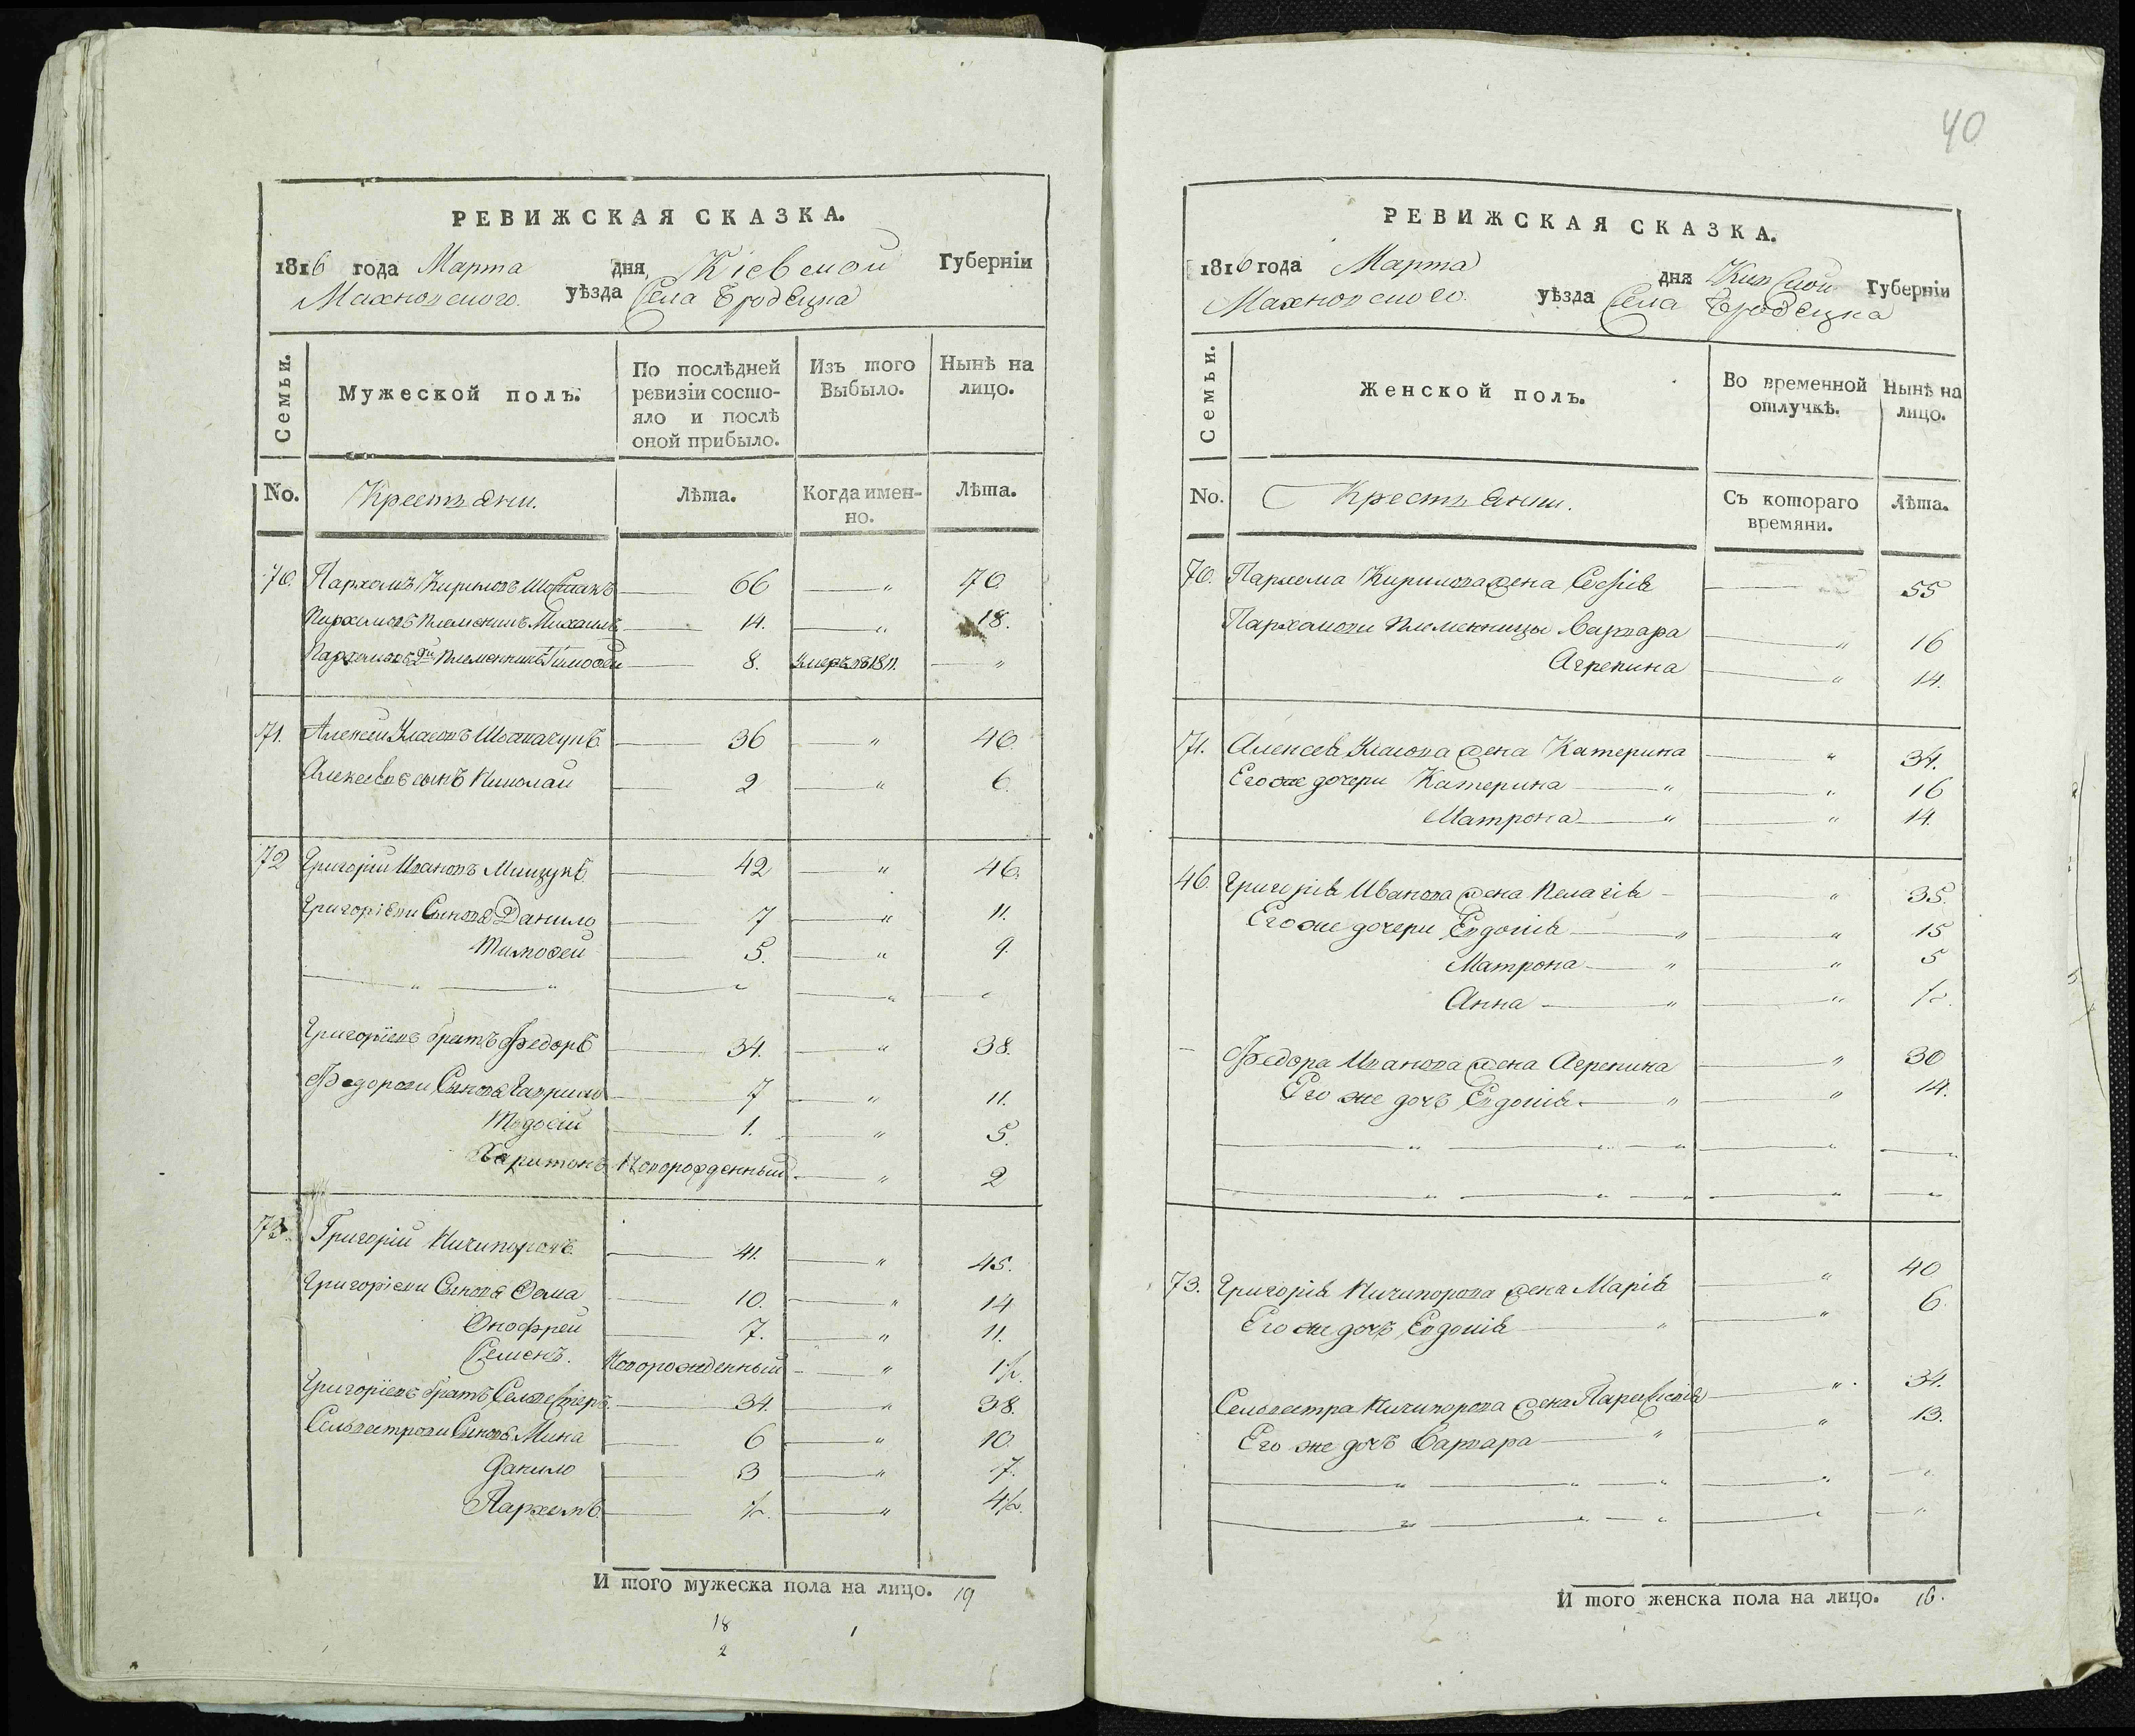 РЕВИЖСКАЯ СКАЗКА.
1816 года Марта дня Кіевской Губерніи
Махновского уѣзда Села Бродецка
Семьи.
Мужеской полъ.
По послѣдней ревизіи состо-
яло и послѣ
оной прибыло.
Изъ того
Выбыло.
Нынѣ на
лицо.
No. Крестьяни. Лѣта. Когда имен-
но. Лѣта.
70. Пархомъ Кириловъ 66 " 70
Пархомовъ племеникъ Михаилъ 14. " 18.
Пархомовъ 2й племенникъ Тимофей 8. Умеръ въ 1811. "
71. Алексей Власовъ 36 " 40.
Алексеевъ сынъ Николай 2 " 6.
72 Григорій Ивановъ Мишукъ 42 " 46.
Григоріеви Сынова Данило 7 " 11.
Тимофей 5. " 9.
Григоріевъ братъ Федоръ 34. " 38.
Федорови Сынова Гаврило 7 " 11.
Тодосій 1. " 5.
Харитонъ Новорожденный " 2
73. Григорій Ничипоровъ 41. " 45.
Григоріеви Сынова Фома 10. " 14
Онофрей 7. " 11.
Семенъ. Новорожденный " 1½.
Григоріевъ братъ Селвестеръ 34. " 38.
Сельвестрови Сынова Мина 6 " 10.
Данило 3 " 7.
Пархомъ ½. " 4½.
И того мужеска пола на лицо. 19
18 1
2
40
РЕВИЖСКАЯ СКАЗКА.
1816 года Марта дня Киевской Губерніи
Махновского уѣзда Села Бродецка
Семьи.
Женской полъ.
Во временной
отлучкѣ.
Нынѣ на
лицо.
No. Крестьянки. Съ котораго
времяни. Лѣта.
70. Пархома Кирилова жена Софія 55
Пархомови племенницы Варвара " 16
Агрепина " 14.
71. Алексея Власова жена Катерина " 34.
Его же дочери Катерина " " 16
Матрона " " 14.
46. Григорія Иванова жена Пелагія " 35.
Его же дочери Евдокія " " 15
Матрона " " 5
Анна " " ½.
Федора Иванова жена Агрепина " 30
Его же дочъ Евдокія " " 14.
73. Григорія Ничипорова жена Марія " 40
Его же дочъ Евдокія " " 6
Сельвестра Ничипорова жена Парасковія " 34.
Его же дочъ Варвара " " 13.
И того женска пола на лицо. 16.